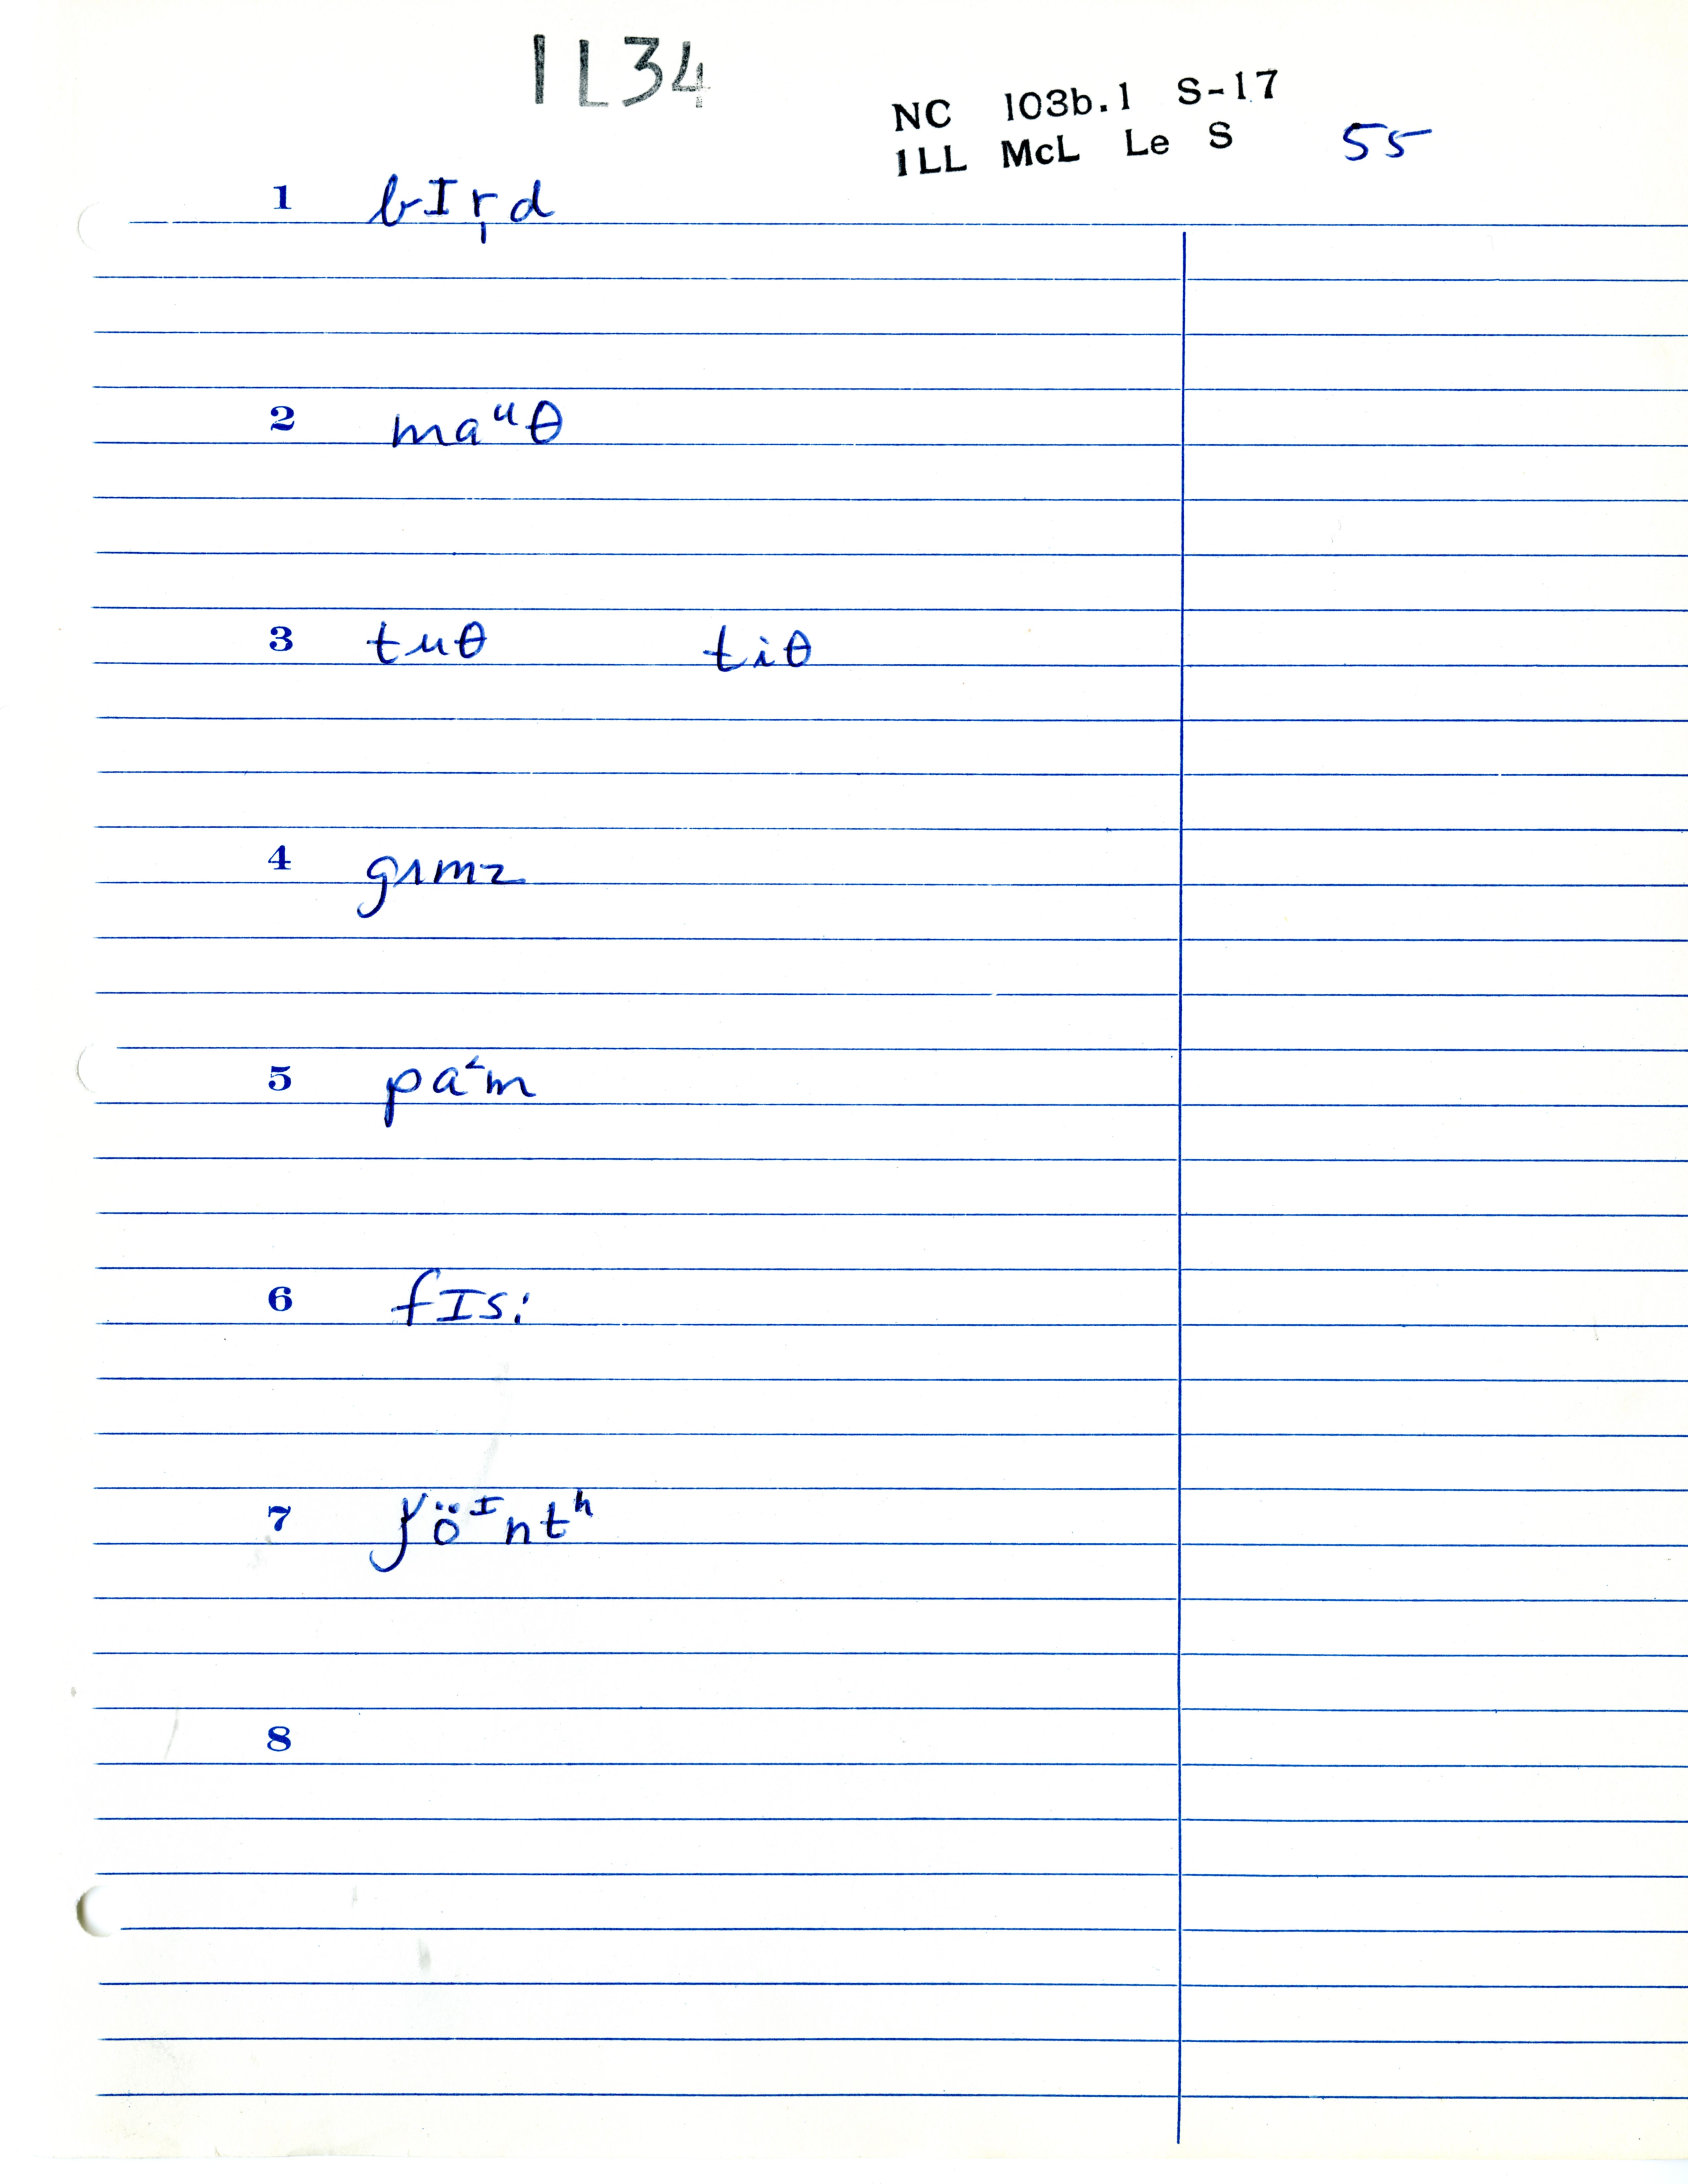 1L34
NC 103b.1 S-17
1LL McL Le S 55
1 bIr̩d
2 maᵘθ
3 tuθ tiθ
4 gʌmz
5 pa˂m
6 fIsi
7 ɉöᴵntʰ
8